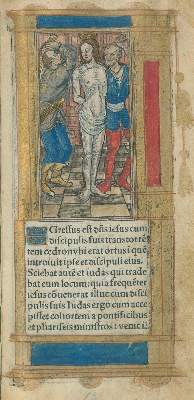 Egressus est dn̄s iesus cum
discipulis suis trans torrē
tem cedron vbi erat ortus ī quē
introiuit ipse et discipuli eius.
Sciebat autē et iudas qui trade
bat eum locum: quia frequēter
iesus cōuenerat illuc cum disci
pulis suis Iudas ergo cum acce
pisset cohortem a pontificibus
et phariseis ministros : venit il